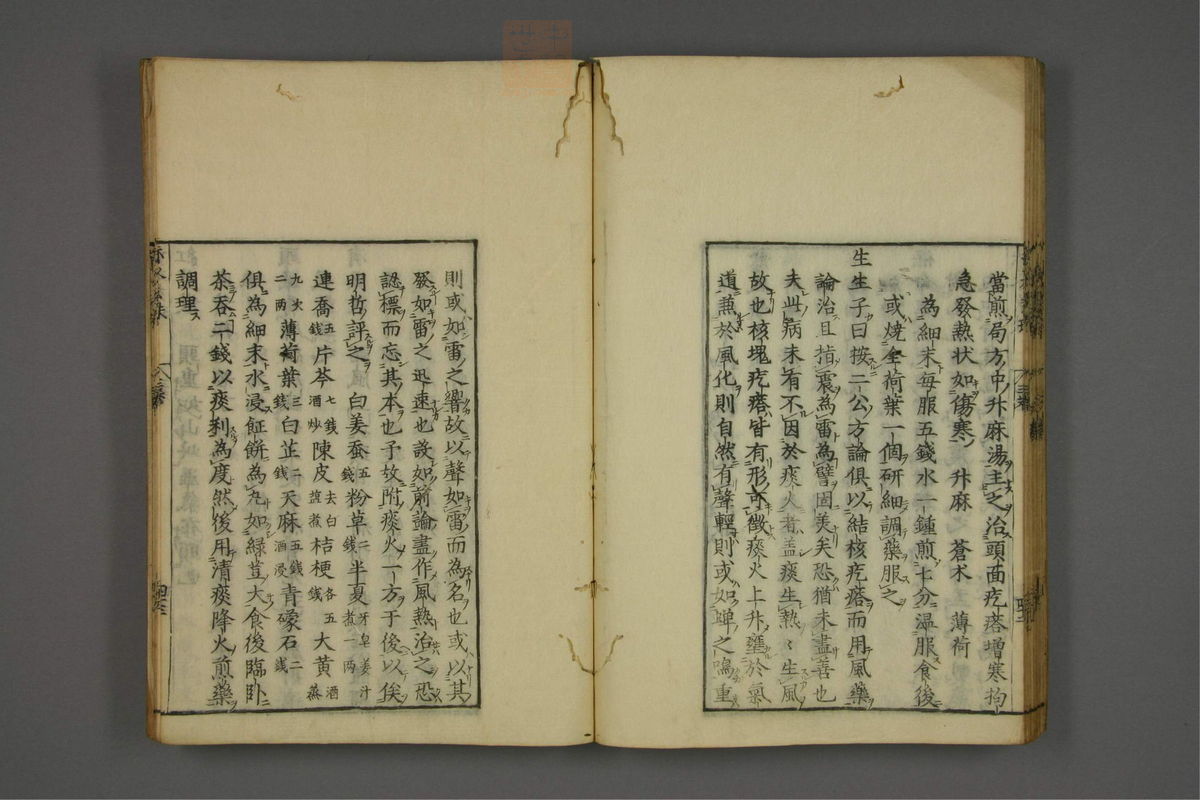 當煎局方中升麻湯主之治頭面疙瘩增寒拘
急發熱状如傷寒 升麻 蒼朮 薄荷
為細末每服五錢水一鍾煎七分温服食後
或燒全荷葉一個研細調藥服之
生生子曰按二公方論俱以結核疙瘩而用風藥
論治且指震為雷為譬固美矣恐猶未盡善也
夫此病未有不因於痰火者盖痰生熱〻生風
故也核塊疙瘩皆有形可徵痰火上升壅於氣
道兼於風化則自然有聲輕則或如蟬之鳴重
則或如雷之響故以聲如雷而為名也或以其
發如雷之迅速也設如前論盡作風熱治之恐
認標而忘其本也予故附痰火一方于後以俟
明哲評之 白姜蚕五錢粉草二錢半夏牙皂姜汁煮一兩
連喬五錢片芩七錢酒炒陳皮去白塩煮桔梗各五錢大黄酒蒸
九次二兩薄荷葉三錢白芷二錢天麻五錢酒浸青礞石二錢
俱為細末水浸餅為丸如緑豆大食後臨卧
茶吞二錢以痰利為度然後用清痰降火煎藥
調理